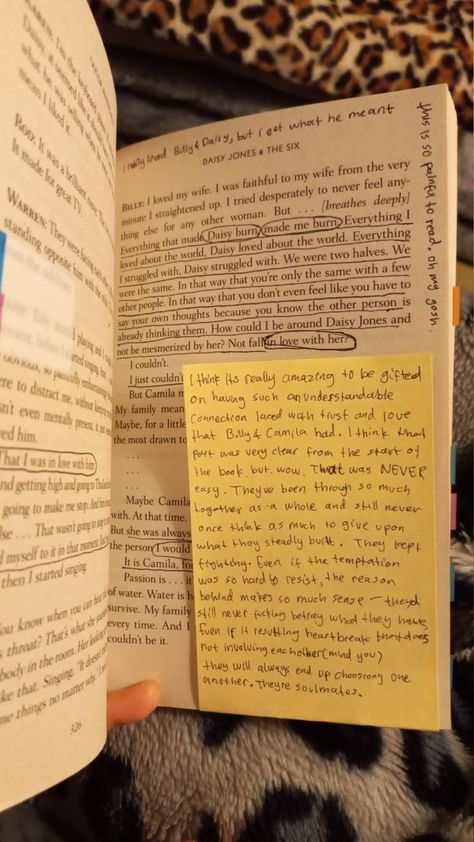 what he was selling
mean I liked it.
ROD: It was a brilliant
It made for great TV.
WARREN: They were facing
standing opposite him with
playing and I
started singing
to distract me, without
even mentally present. I
ved him.
That I was in love with him
and getting high and going to
going to make me stop. And
Else . . . That wasn't going to stop
d myself to it in that moment,
then I started singing.
You know when you can
throat? That's what she
body in the room. Her
like that. Singing, "It doesn't
me things no matter why
326
I really loved Billy & Daisy, but i got what he meant
DAISY JONES & THE SIX
this is so painful to read. oh my gosh.
BILLY: I loved my wife. I was faithful to my wife from the very
minute I straightened up. I tried desperately to never feel any-
thing else for any other woman. But . . . [breathes deeply]
Everything that made Daisy burn, made me burn. Everything I
loved about the world, Daisy loved about the world. Everything
I struggled with, Daisy struggled with. We were two halves. We
were the same. In that way that you're only the same with a few
other people. In that way that you don't even feel like you have to
say your own thoughts because you know the other person is
already thinking them. How could I be around Daisy Jones and
not be mesmerized by her? Not fall in love with her?
I couldn't.
I just couldn't
But Camila
My family mean
Maybe, for a little
the most drawn to
. . .
. . .
. . .
Maybe Camila
with. At that time.
But she was always
the person I would
It is Camila, for
Passion is . . . it
of water. Water is
survive. My family
every time. And I
couldn't be it.
I think its really amazing to be gifted
on having such an understandable
connection laced with trust and love
that Billy & Camila had. I think that
part was very clear from the start of
the book. but. wow. That was NEVER
easy. Theyve been through so much
together as a whole and still never
once think as much to give upon
what they steadily built. They kept
fighting. Even if the temptation
was so hard to resist, the reason
behind makes so much sense — theyd
still never fucking betray what they have
Even if it resulting heartbreak that does
not involving each other (mind you)
they will always end up choosing one
another. Theyre soulmates.